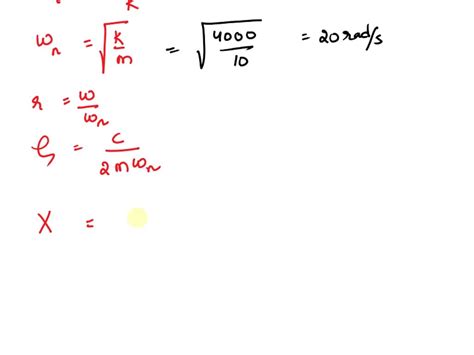 k
ωₙ = √(k/m) = √(4000/10) = 20 rad/s
r = ω/ωₙ
ζ = c/(2mωₙ)
X =